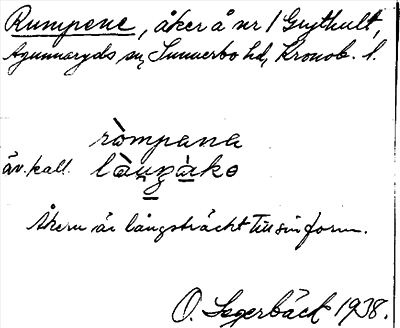 Rumpene, åker å nr 1 Gythult,
Agunnaryds sn, Sunnerbo hd, Kronob. l.
ròmpana
äv. kall. làŋgàkə
Åkern är långsträckt till sin form.
O. Segerbäck 1938.